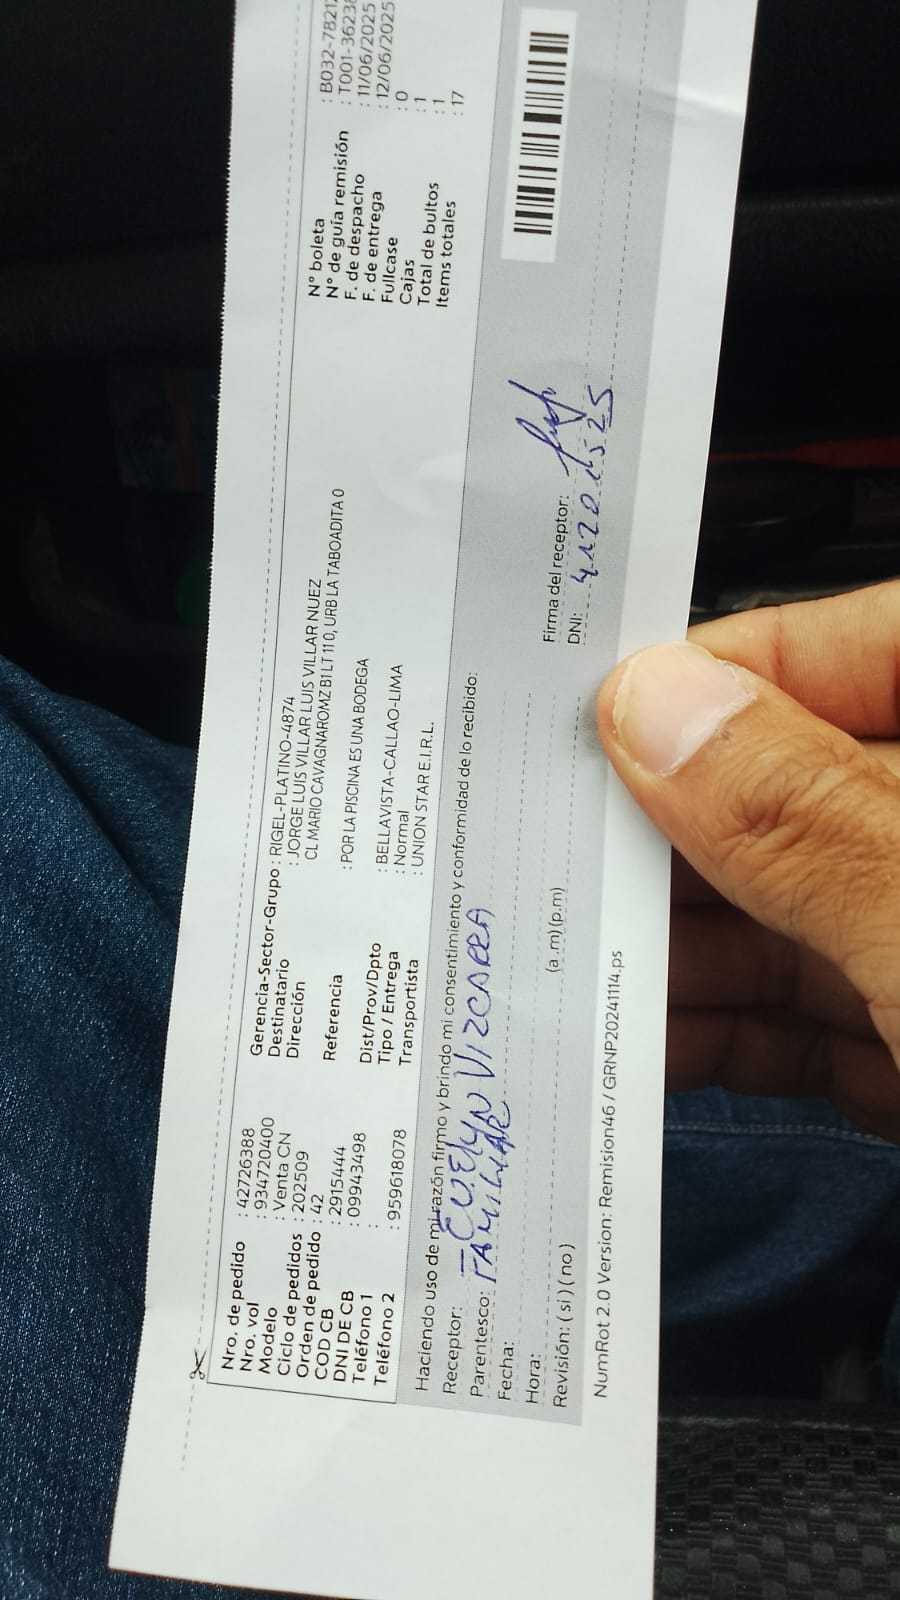 Nro. de pedido : 42726388
Nro. vol : 934720400
Modelo : Venta CN
Ciclo de pedidos : 202509
Orden de pedido : 42
COD CB : 2915444
DNI DE CB : 09943498
Teléfono 1 :
Teléfono 2 : 959618078
Gerencia-Sector-Grupo : RIGEL-PLATINO-4874
Destinatario : JORGE LUIS VILLAR LUIS VILLAR NUEZ
Dirección CL MARIO CAVAGNAROMZ B1 LT 110, URB LA TABOADITA 0
Referencia : POR LA PISCINA ES UNA BODEGA
Dist/Prov/Dpto : BELLAVISTA-CALLAO-LIMA
Tipo / Entrega : Normal
Transportista : UNION STAR E.I.R.L.
N° boleta : B032-7821
N° de guía remisión : T001-3623
F. de despacho : 11/06/2025
F. de entrega : 12/06/2025
Fullcase : 0
Cajas : 1
Total de bultos : 1
Items totales : 17
Haciendo uso de mi razón firmo y brindo mi consentimiento y conformidad de lo recibido:
Receptor: EVELYN VIZCARRA
Parentesco: FAMILIAR
Fecha:
Hora: (a.m)(p.m)
Revisión: ( si ) ( no )
Firma del receptor:
DNI:
NumRot 2.0 Version: Remision46 / GRNP20241114.ps